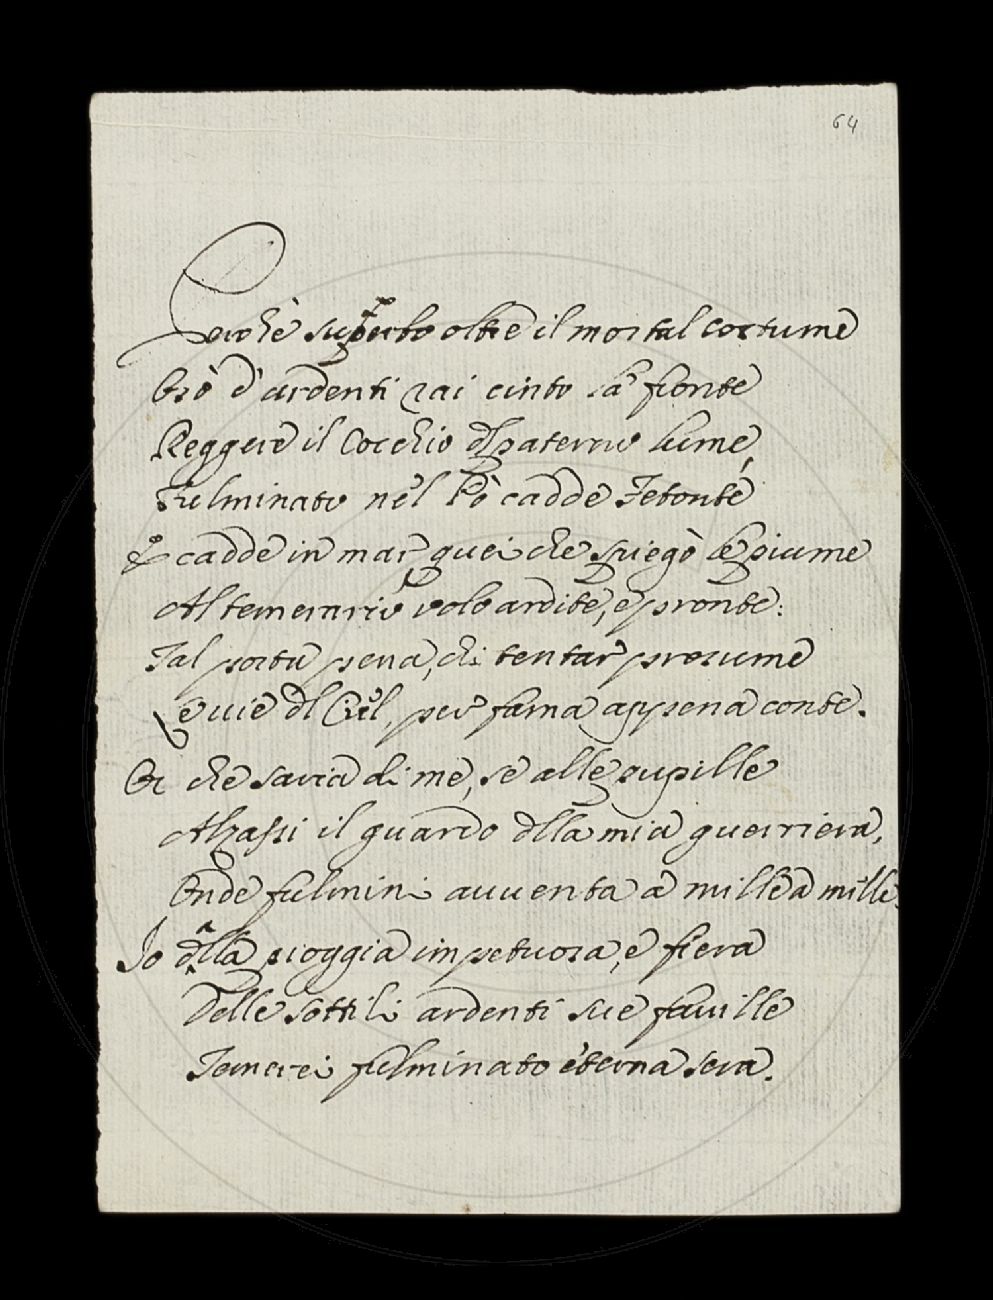 64
Perchè superbo oltre il mortal costume
Osò d'ardenti rai cinto la fronte
Reggere il Cocchio dl paterno lume,
Fulminato nel Pò cadde Fetonte
E cadde in mar, quei che spiegò le piume
Al temerario volo ardite, e pronte:
Tal porta pena, chi tentar presume
Le vie dl Ciel, per fama appena conte.
Or che saria di me, se alle pupille
Alzassi il guardo dlla mia guerriera,
Onde fulmini avventa a mille a mille.
Io dlla pioggia impetuosa, e fiera
Delle sottili ardenti sue faville
Temerei fulminato eterna sera.